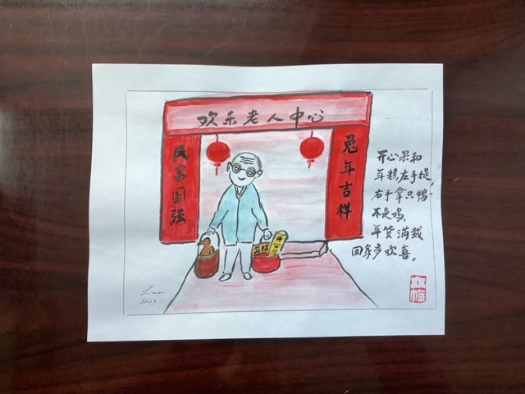 欢乐老人中心
民富国强
兔年吉祥
开心果和
年糕左手提,
右手拿只鸭
不是鸡,
年货满载
回家多欢喜。
2023